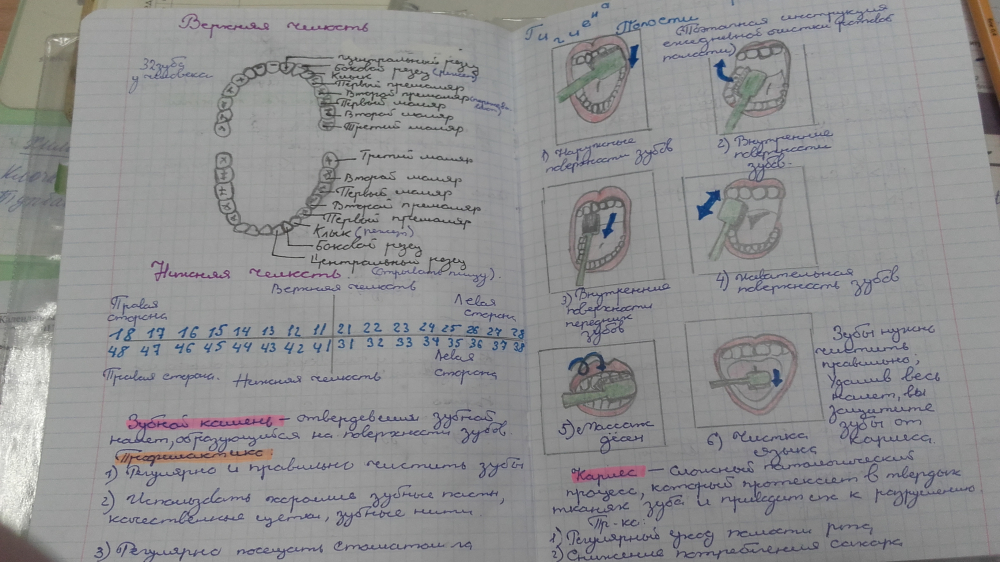 Верхняя челюсть
32 зуба
у человека
Центральный резец
Боковой резец
Клык
Первый премоляр
Второй премоляр
Первый моляр
Второй моляр
Третий моляр
Третий моляр
Второй моляр
Первый моляр
Второй премоляр
Первый премоляр
Клык
Боковой резец
Центральный резец
Нижняя челюсть.
(отрывать пищу).
Верхняя челюсть
Правая
сторона
Левая
сторона
18 17 16 15 14 13 12 11 21 22 23 24 25 26 27 28
48 47 46 45 44 43 42 41 31 32 33 34 35 36 37 38
Правая сторона. Нижняя челюсть
Левая
сторона
Зубной камень – отвердевший зубной
налет, образующийся на поверхности зубов.
Профилактика:
1) Регулярно и правильно чистить зубы
2) Использовать хорошие зубные пасты,
качественные щетки, зубные нити
3) Регулярно посещать стоматолога
Гигиена Полости
(Поэтапная инструкция
ежедневной очистки ротовой
полости)
1) Наружные
поверхности зубов
2) Внутренние
поверхности
зубов.
3) Внутренние
поверхности
передних
зубов
4) Жевательная
поверхность зубов
5) Массаж
дёсен
6) Чистка
языка
Зубы нужно
чистить
правильно,
удалив весь
налет, вы
защитите
зубы от
кариеса.
Кариес – сложный патологический
процесс, который протекает в твердых
тканях зуба и приводит их к разрушению
Пр-ка:
1) Регулярный уход полости рта
2) Снижение потребления сахара